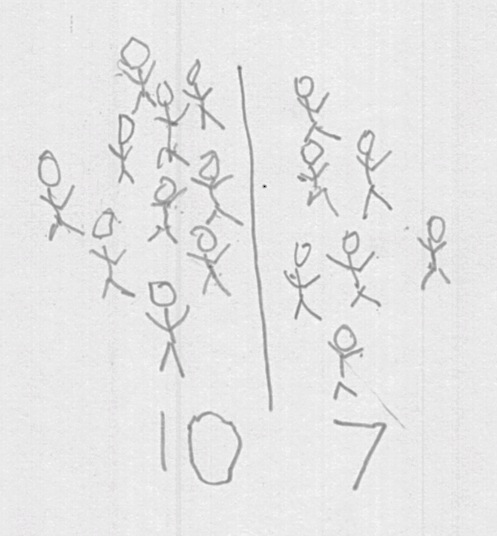 10 7